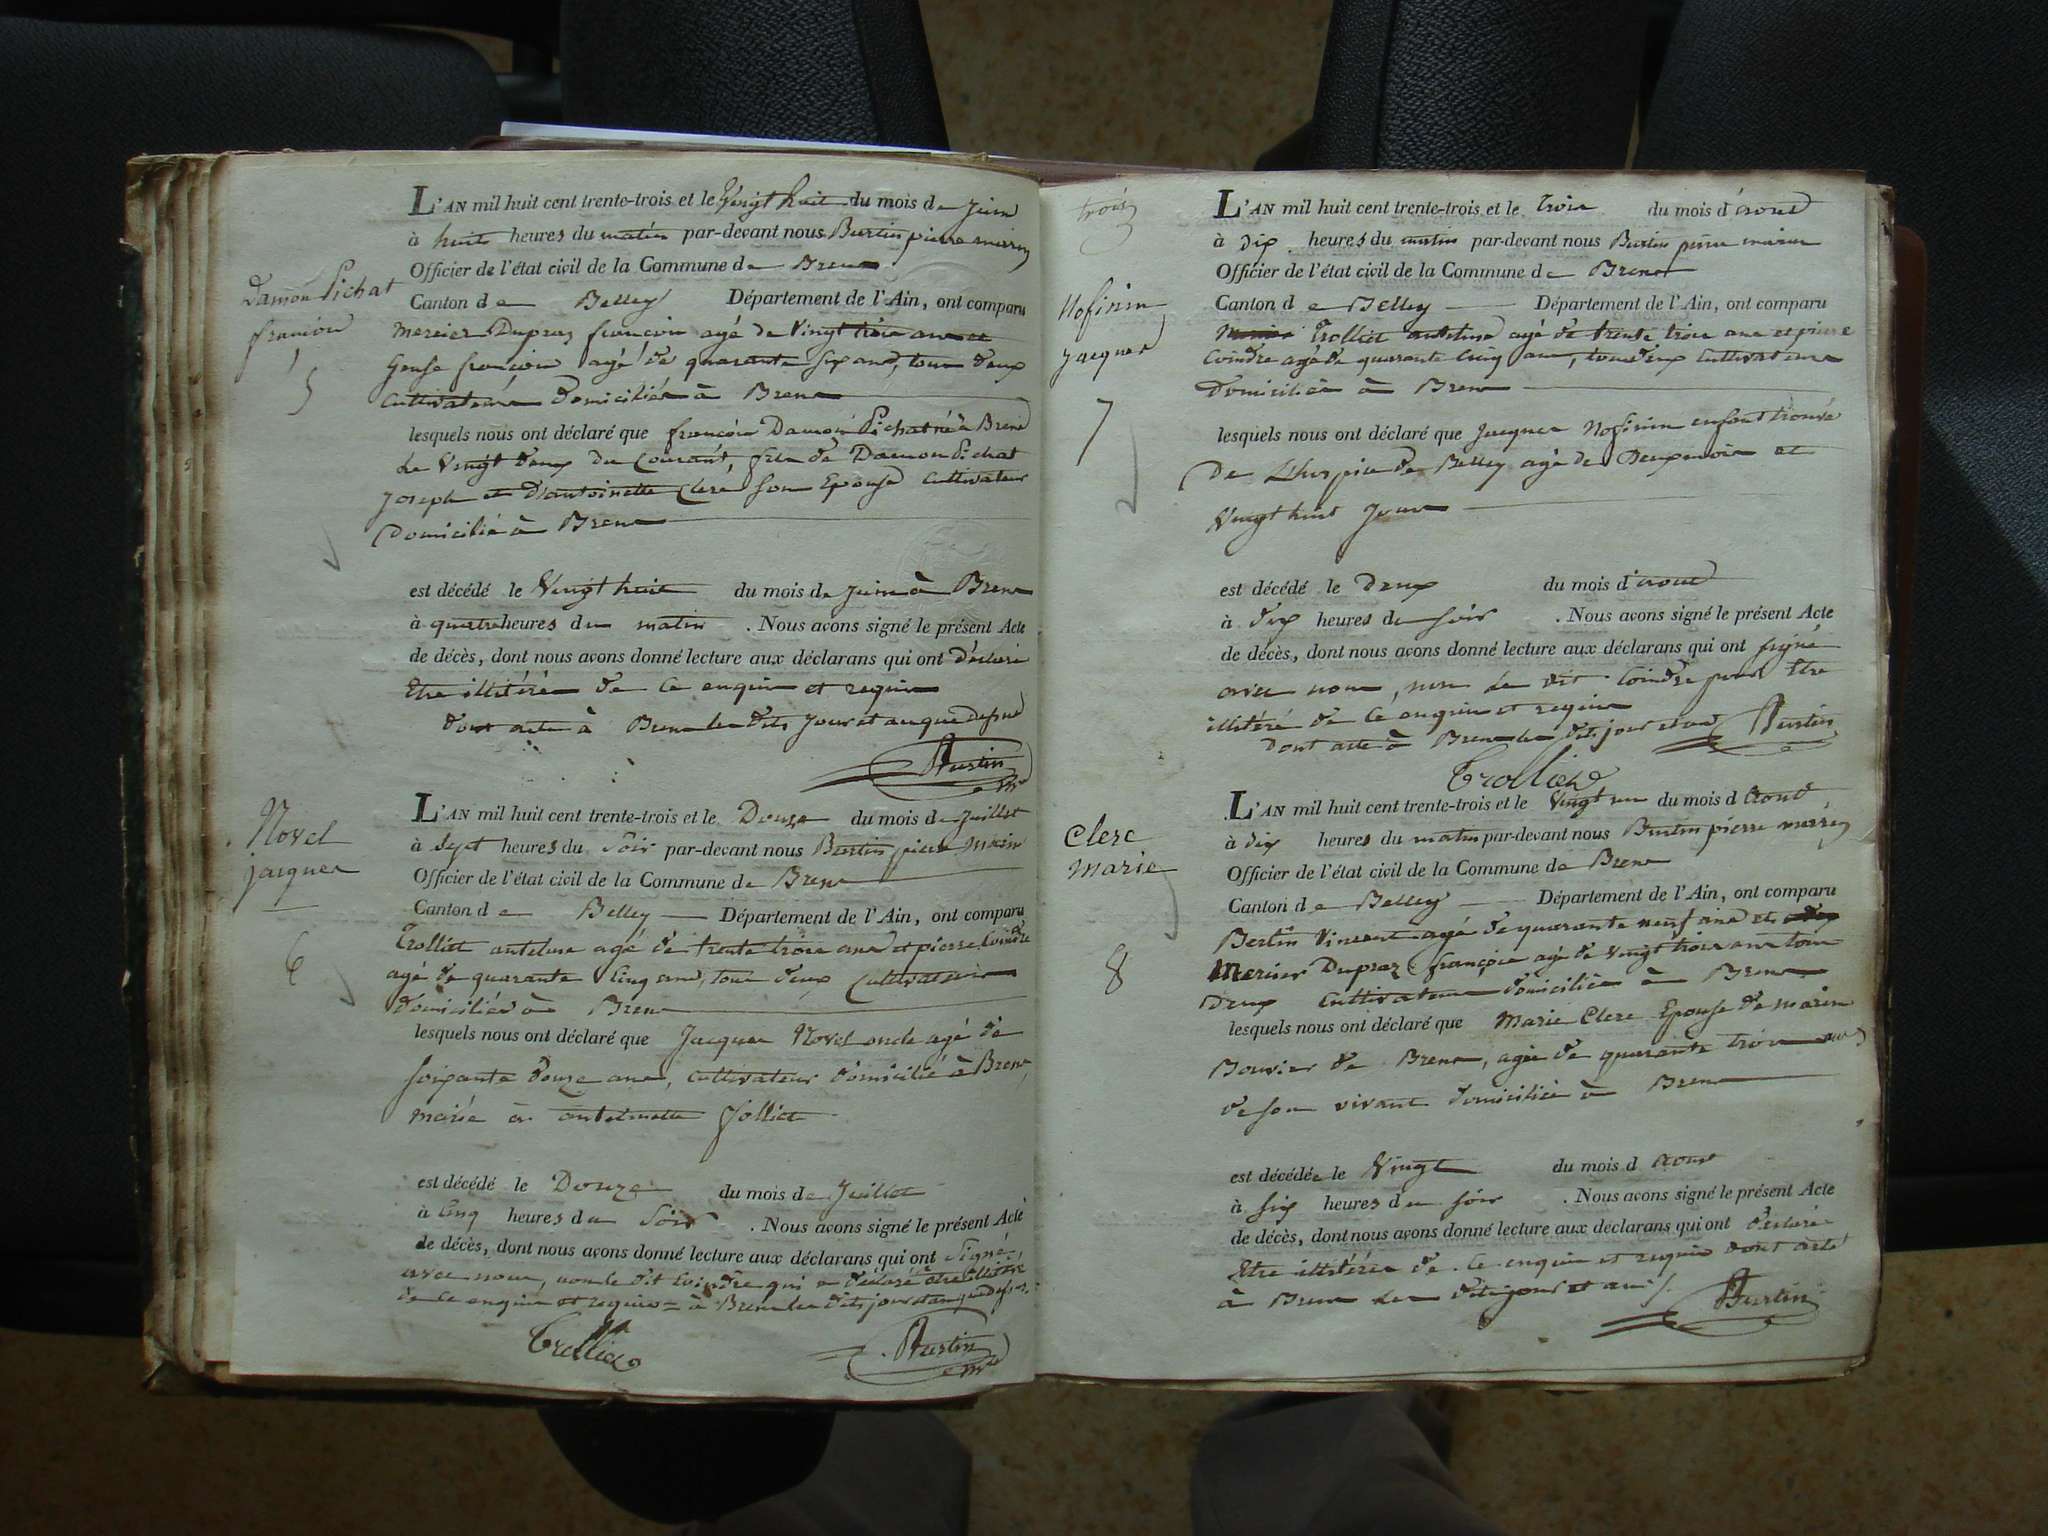 L'AN mil huit cent trente-trois et le Vingt huit du mois de Juin
à huit heures du matin par-devant nous Burtin pierre
Officier de l'état civil de la Commune de Brens
Damon Pichat
Canton de Belley Département de l'Ain, ont comparu
françois
Mercier Dupraz françois agé de Vingt trois ans et
françois agé de quarante six ans, tous deux
5
Cultivateurs Domiciliés à Brens
lesquels nous ont déclaré que françois Damon Pichat né à Brens
Le Vingt deux du Courant, fils de Damon Pichat
Joseph et d'antoinette Clerc son Epouse Cultivateur
Domicilié à Brens
est décédé le Vingt huit du mois de Juin à Brens
à quatre heures du matin . Nous avons signé le présent Acte
de décès, dont nous avons donné lecture aux déclarans qui ont déclaré
Etre illitérés de ce enquis et requis
dont acte à Brens les dits Jour et an que dessus
Burtin
Novel
jacques
6
L'AN mil huit cent trente-trois et le Douze du mois de Juillet
à Sept heures du Soir par-devant nous Burtin pierre
Officier de l'état civil de la Commune de Brens
Canton de Belley Département de l'Ain, ont comparu
Trolliet antelme agé de trente trois ans et pierre Coindre
agé de quarante Cinq ans, tous deux Cultivateurs
domiciliés à Brens
lesquels nous ont déclaré que Jacques Novel agé de
soixante douze ans, cultivateur domicilié à Brens,
marié à antelmette Jolliet
est décédé le Douze du mois de Juillet
à Cinq heures du Soir . Nous avons signé le présent Acte
de décès, dont nous avons donné lecture aux déclarans qui ont Signé
avec nous, non le dit Coindre qui a déclaré être illitéré
de ce enquis et requis à Brens les dits jour et an que dessus
Trolliet
Burtin
trois
L'AN mil huit cent trente-trois et le trois du mois d'aout
à dix heures du matin par-devant nous Burtin pierre
Officier de l'état civil de la Commune de Brens
Jacques
7
Canton de Belley Département de l'Ain, ont comparu
Trolliet antelme agé de trente trois ans et pierre
Coindre agé de quarante Cinq ans, tous deux Cultivateurs
domiciliés à Brens
lesquels nous ont déclaré que Jacques enfant trouvé
De L'hospice de Belley agé de Deux mois et
Vingt huit Jours
est décédé le Deux du mois d'aout
à dix heures du soir . Nous avons signé le présent Acte
de décès, dont nous avons donné lecture aux déclarans qui ont signé
avec nous, non Le dit Coindre pour Etre
illitéré de cé enquis et requis
dont acte à Brens les dits jour et an Burtin
Trolliet
Clerc
Marie
8
L'AN mil huit cent trente-trois et le Vingt un du mois d aout
à dix heures du matin par-devant nous Burtin pierre
Officier de l'état civil de la Commune de Brens
Canton de Belley Département de l'Ain, ont comparu
Bertin Vincent agé de quarante neuf ans et
Mercier Dupraz françois agé de Vingt trois ans tous
Deux Cultivateurs domiciliés à Brens
lesquels nous ont déclaré que Marie Clerc Epouse de marin
Bouvier de Brens, agée de quarante trois ans
de son vivant domiciliée à Brens
est décédée le Vingt du mois d aout
à six heures du soir . Nous avons signé le présent Acte
de décès, dont nous avons donné lecture aux déclarans qui ont déclaré
Etre illitérés de ce enquis et requis dont acte
à Brens Les dits jour et an
Burtin